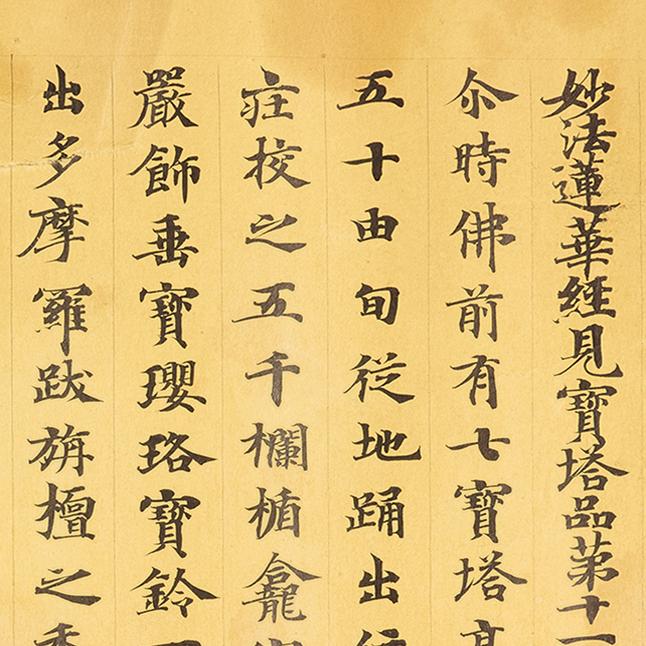 妙法蓮華經見寶塔品第十一
尒時佛前有七寶塔高
五十由旬從地踊出
莊校之五千欄楯龕
嚴飾垂寶瓔珞寶鈴
出多摩羅跋旃檀之香